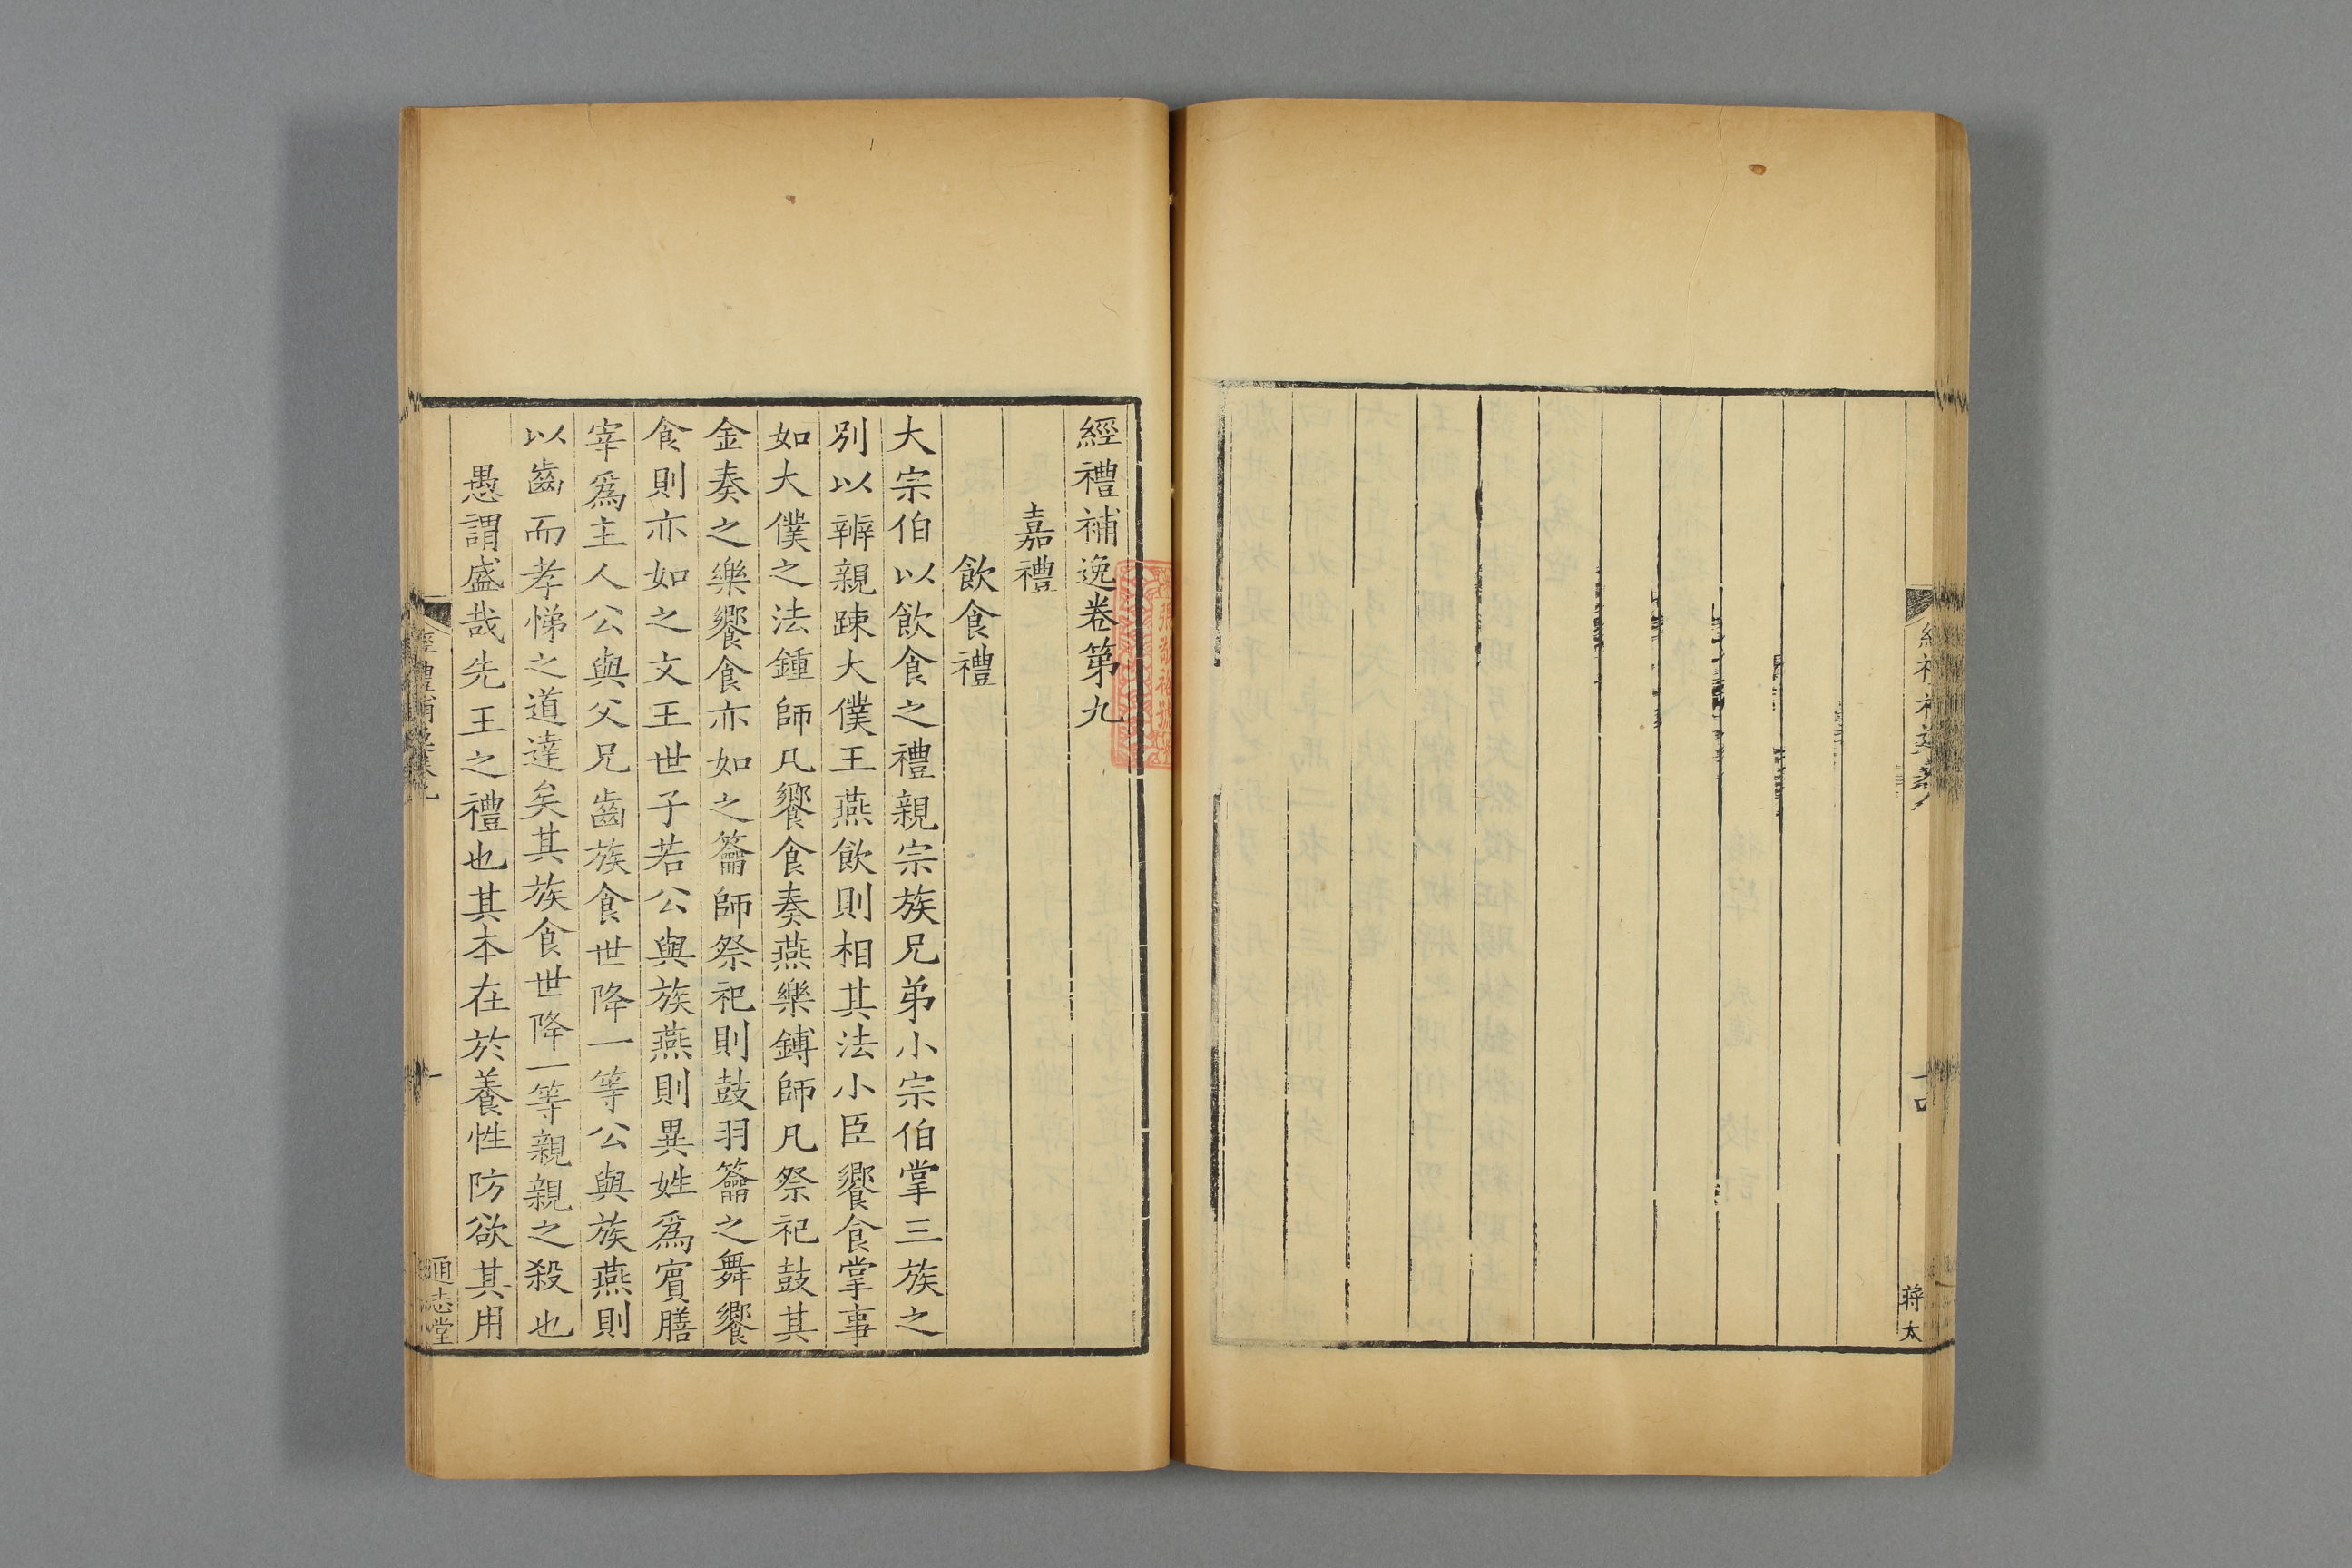 經禮補逸卷第九
嘉禮
飲食禮
大宗伯以飲食之禮親宗族兄弟小宗伯掌三族之
別以辨親踈大僕王燕飲則相其法小臣饗食掌事
如大僕之法鍾師凡饗食奏燕樂鎛師凡祭祀鼓其
金奏之樂饗食亦如之籥師祭祀則鼓羽籥之舞饗
食則亦如之文王世子若公與族燕則異姓爲賓膳
宰爲主人公與父兄齒族食世降一等公與族燕則
以齒而孝悌之道達矣其族食世降一等親親之殺也
愚謂盛哉先王之禮也其本在於養性防欲其用
一
通志堂
十四
蔣太